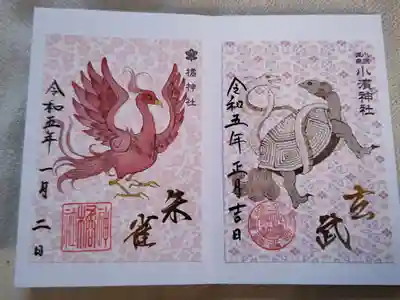 橘神社
令和五年 一月 二日
朱雀
小濱神社
令和五年 正月吉日
玄武